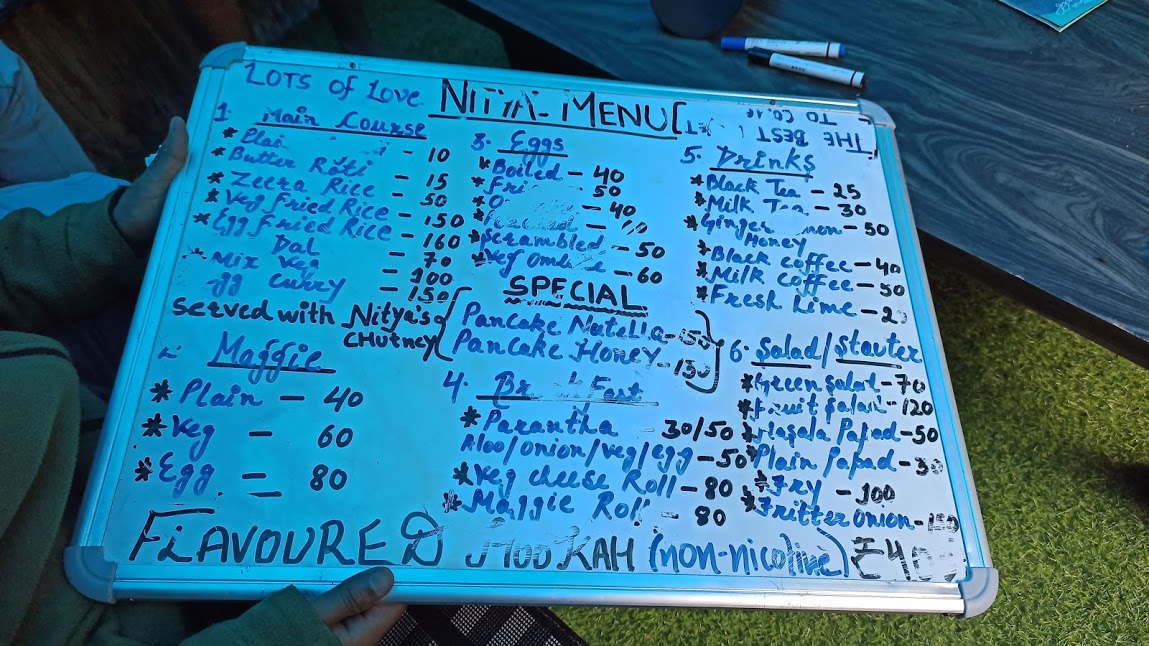 LOTS OF LOVE
NITYA. MENU
THE BEST
TO COME
1. Main Course
* Plai - 10
* Butter Roti - 15
* Zeera Rice - 50
* Veg Fried Rice - 150
* Egg Fried Rice - 160
Dal - 70
* Mix Veg - 100
gg Curry - 150
served with Nitya's
CHutney
2. Maggie
* Plain - 40
* Veg - 60
* Egg - 80
3. Eggs
* Boiled - 40
* Fri 50
- 40
* Scrambled - 50
* Veg - 60
SPECIAL
Pancake Nutella - 150
Pancake Honey - 130
4. Br Fast
* Parantha 30/50
Aloo/onion/veg/egg - 50
* Veg cheese Roll - 80
* Maggie Roll - 80
5. Drinks
* Black Tea - 25
* Milk Tea - 30
* Ginger mon - 50
Honey
* Black Coffee - 40
* Milk Coffee - 50
* Fresh Lime - 2
6. Salad/Stauter
* Green Salad - 70
* Fruit Salad - 120
* Masala Papad - 50
* Plain Papad - 30
* Fry - 100
* Fritter Onion -
FLAVOURED HOOKAH (non-nicotine) ₹400